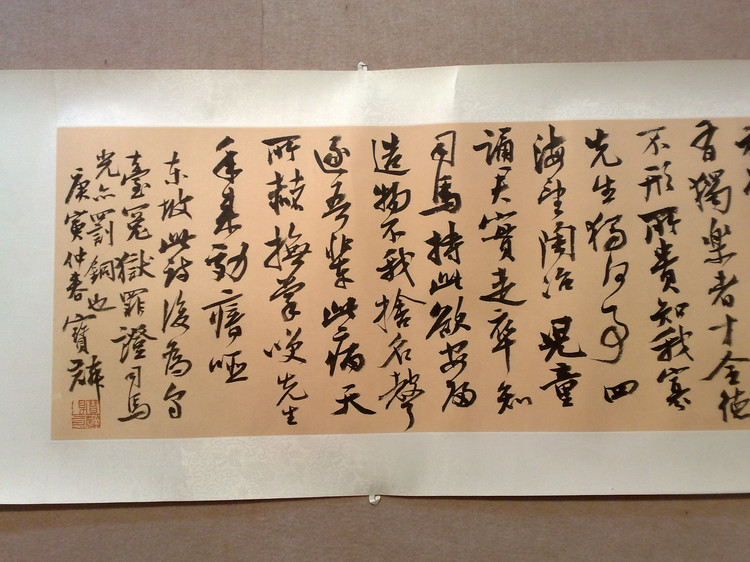 有獨樂者才全德
不形所貴知我寡
先生獨何事四
海望陶冶兒童
誦君實走卒知
司馬持此欲安歸
造物不我捨名聲
逐吾輩此病天
所赭撫掌咲先生
年來効瘖啞
東坡此詩後為烏
臺冤獄罪證司馬
光亦罰銅也
庚寅仲春寶